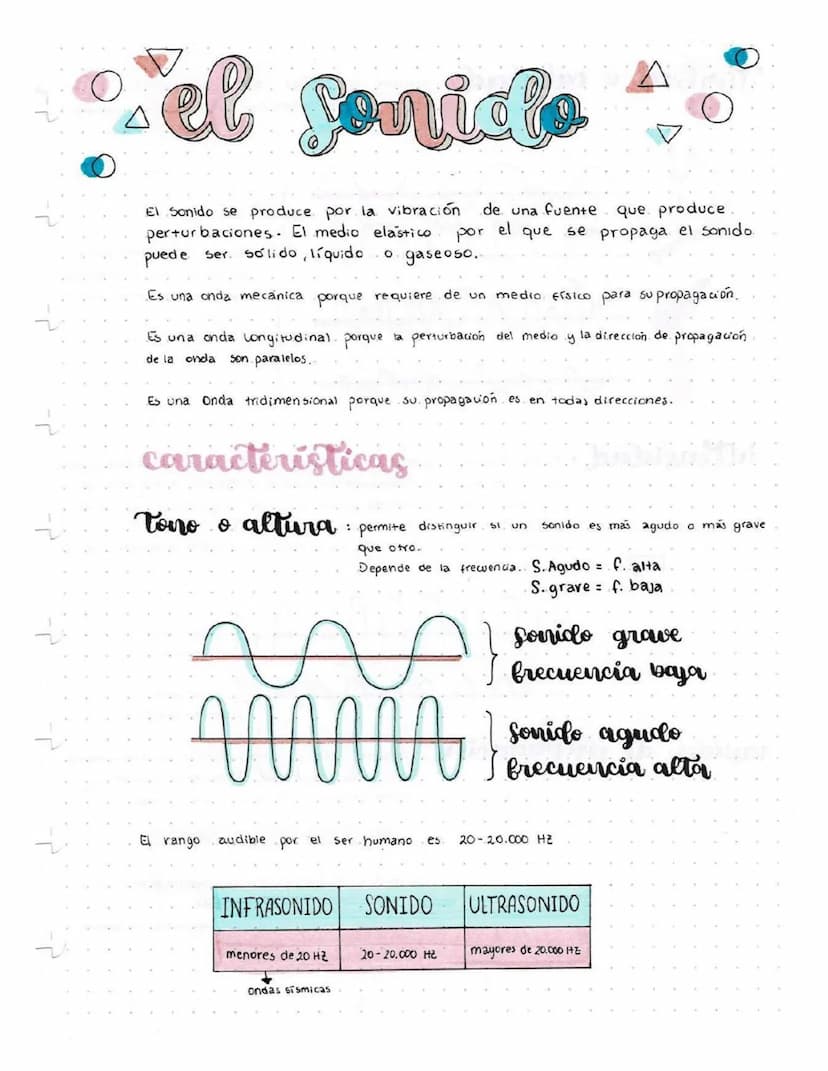 el sonido
El sonido se produce por la vibración de una fuente que produce
perturbaciones. El medio elástico por el que se propaga el sonido
puede ser sólido, líquido o gaseoso.
Es una onda mecánica porque requiere de un medio físico para su propagación.
Es una onda longitudinal porque la perturbación del medio y la dirección de propagación
de la onda son paralelos.
Es una Onda tridimensional porque su propagación es en todas direcciones.
características
tono o altura : permite distinguir si un sonido es más agudo o más grave
que otro.
Depende de la frecuencia. S. Agudo = f. alta
S. grave = f. baja
sonido grave
frecuencia baja
sonido agudo
frecuencia alta
El rango audible por el ser humano es 20-20.000 HZ
INFRASONIDO SONIDO ULTRASONIDO
menores de 20 HZ 20-20.000 HZ mayores de 20.000 HZ
Ondas sísmicas